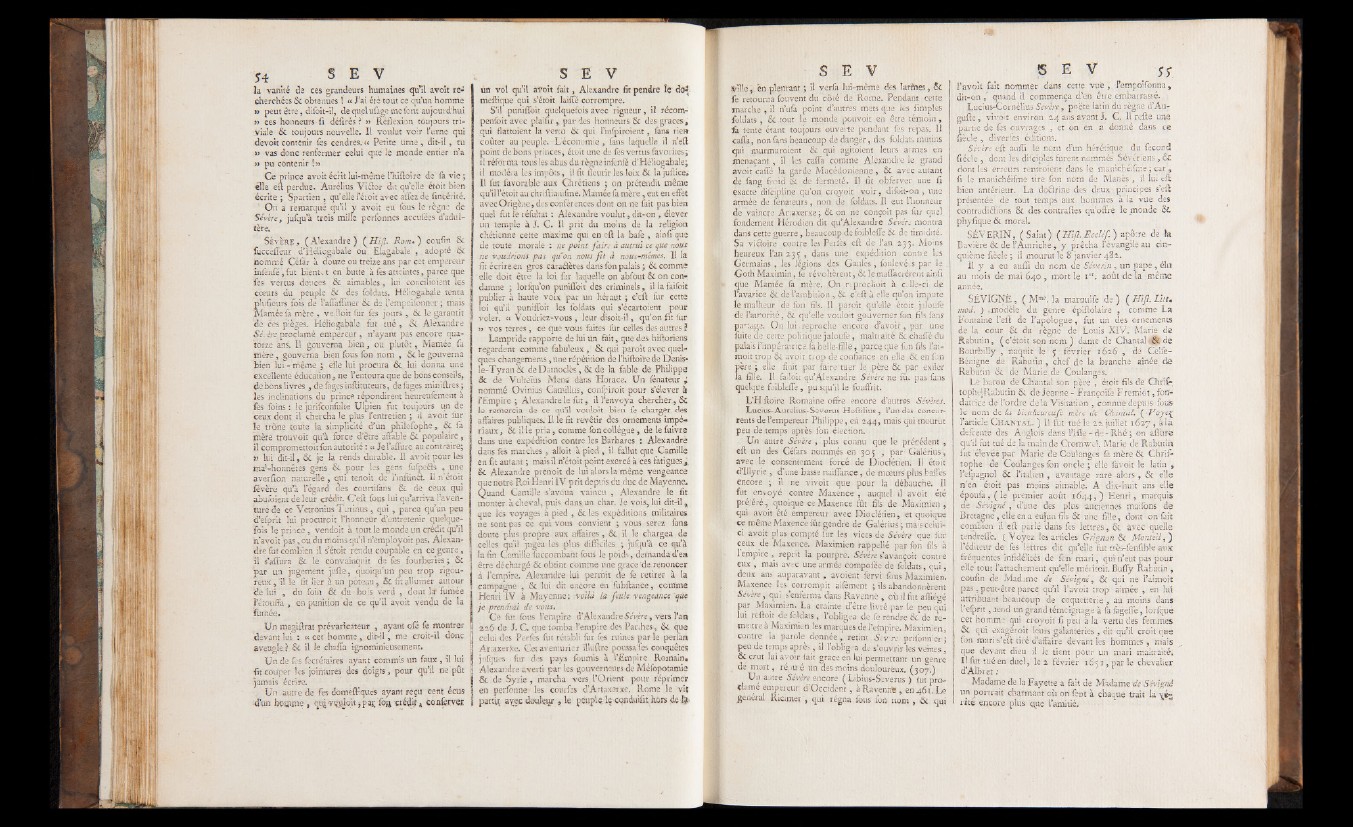 54 S E V
la vanité de ces grandeurs humaines qu'il avoit re-
cherchées & obtenues ! « J'ai été tout ce qu'un homme
» peut être, disoit-il, de quel usage me sont aujourd'hui
» ces honneurs si désirés ? » Réflexion toujours tri-
viale & toujours nouvelle. Il voulut voir l'urne qui
devoit contenir ses cendres. « Petite urne, dit-il, tu
» vas donc renfermer celui que le monde entier n'a
» pu contenir ! »
Ce prince avoit écrit lui-même l'histoire de sa vie ;
elle est perdue. Aurelius Victor dit qu'elle étoit bien
écrite ; Spartien, qu'elle l'étoit avec assez de sincérité.
On a remarqué qu'il y avoit eu sous le règne de
Sévère, jusqu'à trois mille personnes accusées d'adul-
tère.
SÉVÈRE, (Alexandre) (Hist. Rom.) cousin &
successeur d'Héliogabale ou Elagabale, adopté &
nommé César à douze ou treize ans par cet empereur
insensé, fut bientôt en butte à ses atteintes, parce que
ses vertus douces & aimables, lui concilioient les
cœurs du peuple & des soldats. Héliogabale tenta
plusieurs fois de l'assassiner & de l'empoisonner ; mais
Mamée sa mère, veilloit sur ses jours, & le garantit
de ces pièges. Héliogabale fut tué, & Alexandre
Sévère proclamé empereur, n'ayant pas encore qua-
torze ans. Il gouverna bien, ou plutôt, Mamée sa
mère, gouverna bien sous son nom, & le gouverna
bien lui-même ; elle lui procura & lui donna une
excellente éducation, ne l'entoura que de bons conseils,
de bons livres, de sages instituteurs, de sages ministres ;
les inclinations du prince répondirent heureusement à
ses soins : le jurisconsulte Ulpien fut toujours un de
ceux dont il chercha le plus l'entretien ; il avoit sur
le trône toute la simplicité d'un philosophe, & sa
mère trouvoit qu'à force d'être affable & populaire,
il compromettoit son autorité : « Je l'assure au contraire,
» lui dit-il, & je la rends durable. Il avoit pour les
mal-honnêtes gens & pour les gens suspects, une
aversion naturelle, qui tenoit de l'instinct. Il n'étoit
sévère qu'à l'égard des courtisans & de ceux qui
abusoient de leur crédit. C'est sous lui qu'arriva l'aven-
ture de ce Vetronius Turinus, qui, parce qu'un peu
d'esprit lui procuroit l'honneur d'entretenir quelque-
fois le prince, vendoit à tout le monde un crédit qu'il
n'avoit pas, ou du moins qu'il n'employoit pas. Alexan-
dre sut combien il s'étoit rendu coupable en ce genre,
il s'assura & le convainquit de ses fourberies ; &
par un jugement juste, quoiqu'un peu trop rigou-
reux, il le fit lier à un poteau, & fit allumer autour
de lui, du foin & du bois verd, dont la fumée
l'étouffa, en punition de ce qu'il avoit vendu de la
fumée.
Un magistrat prévaricateur, ayant osé se montrer
devant lui : « cet homme, dit-il, me croit-il donc
aveugle ? & il le chassa ignominieusement.
Un de ses secrétaires ayant commis un faux, il lui
fit couper les jointures des doigts, pour qu'il ne pût
jamais écrire.
Un autre de ses domestiques ayant reçu cent écus
d'un homme, qui vouloit, par son crédit, conserver
S E V
un vol qu'il avoit fait, Alexandre fit pendre le do-
mestique qui s'étoit laissé corrompre.
S'il punissoit quelquefois avec rigueur, il récom-
pensoit avec plaisir, par des honneurs & des graces,
qui flattoient la vertu & qui l'inspiroient, sans rien
coûter au peuple. L'économie, sans laquelle il n'est
point de bons princes, étoit une de ses vertus favorites ;
il réforma tous les abus du règne insensé d'Héliogabale,
il modéra les impôts, il fit fleurir les loix & la justice.
Il fut favorable aux Chrétiens ; on prétendit même
qu'il l'étoit au christianisme. Mamée sa mère, eut en effet
avec Origène, des conférences dont on ne sait pas bien
quel fut le résultat : Alexandre voulut, dit-on, élever
un temple à J. C. Il prit du moins de la religion
chrétienne cette maxime qui en est la base, ainsi que
de toute morale : ne point faire à autrui ce que nous
ne voudrions pas qu'on nous fît à nous-mêmes. Il la
fit écrire en gros caractères dans son palais ; & comme
elle doit être la loi sur laquelle on absout & on con-
damne ; lorsqu'on punissoit des criminels, il la faisoit
publier à haute voix par un héraut ; c'est sur cette
loi qu'il punissoit les soldats qui s'écartoient pour
voler. « Voudriez-vous, leur disoit-il, qu'on fît sur
» vos terres, ce que vous faites sur celles des autres ?
Lampride rapporte de lui un fait, que des historiens
regardent comme fabuleux, & qui paroît avec quel-
ques changemens, une répétition de l'histoire de Denis-
le-Tyran & de Damoclès, & de la fable de Philippe
& de Vulteius Mena dans Horace. Un sénateur,
nommé Ovinius Camillus, conspiroit pour s'élever à
l'Empire ; Alexandre le sut, il l'envoya chercher, &
le remercia de ce qu'il vouloit bien se charger des
affaires publiques. Il le fit revêtir des ornements impé-
riaux, & il le pria, comme son collègue, de le suivre
dans une expédition contre les Barbares : Alexandre
dans ses marches, alloit à pied, il fallut que Camille
en fît autant ; mais il n'étoit point exercé à ces fatigues,
& Alexandre prenoit de lui alors la même vengeance
que notre Roi Henri IV prit depuis du duc de Mayenne.
Quand Camille s'avoua vaincu, Alexandre le fit
monter à cheval, puis dans un char. Je vois, lui dit-il,
que les voyages à pied, & les expéditions militaires
ne sont pas ce qui vous convient ; vous serez sans
doute plus propre aux affaires, & il le chargea de
celles qu'il jugea les plus difficiles ; jusqu'à ce qu'à
la fin Camille succombant sous le poids, demanda d'en
être déchargé & obtint comme une grace de renoncer
à l'empire. Alexandre lui permit de se retirer à la
campagne, & lui dit encore en substance, comme
Henri IV à Mayenne : voilà la seule vengeance que
je prendrai de vous.
Ce fut sous l'empire d'Alexandre Sévère, vers l'an
226 de J. C. que tomba l'empire des Parthes, & que
celui des Perses fut rétabli sur ses ruines par le persan
Artaxerxe. Cet aventurier illustre poussa les conquêtes
jusques sur des pays soumis à l'Empire Romain.
Alexandre averti par les gouverneurs de Mésopotamie
& de Syrie, marcha vers l'Orient pour réprimer
en personne les courses d'Artaxerxe. Rome le vit
partir avec douleur, le peuple le conduisit hors de la
S E V
ville, en pleurant ; il versa lui-même des larmes, &
se retourna souvent du côté de Rome. Pendant cette
marche, il n'usa point d'autres mets que les simples
soldats, & tout le monde pouvoit en être témoin,
sa tente étant toujours ouverte pendant ses repas. Il
cassa, non sans beaucoup de danger, des soldats mutins
qui murmuroient & qui agitoient leurs armes en
menaçant, il les cassa comme Alexandre le grand
avoit cassé la garde Macédonienne, & avec autant
de sang froid & de fermeté. Il fit observer une si
exacte discipline qu'on croyoit voir, disoit-on, une
armée de sénateurs, non de soldats. Il eut l'honneur
de vaincre Artaxerxe ; & on ne conçoit pas sur quel
fondement Hérodien dit qu'Alexandre Sévère montra
dans cette guerre, beaucoup de foiblesse & de timidité.
Sa victoire contre les Perses est de l'an 233. Moins
heureux l'an 235, dans une expédition contre les
Germains, les légions des Gaules, soulevées par le
Goth Maximin, se révoltèrent, & le massacrèrent ainsi
que Mamée sa mère. On reprochoit à celle-ci de
l'avarice & de l'ambition, & c'est à elle qu'on impute
le malheur de son fils. Il paroît qu'elle étoit jalouse
de l'autorité, & qu'elle vouloit gouverner son fils sans
partage. On lui reproche encore d'avoir, par une
suite de cette politique jalouse, maltraité & chassé du
palais l'impératrice sa belle-fille, parce que son fils l'ai-
moit trop & avoit trop de confiance en elle & en son
père ; elle finit par faire tuer le père & par exiler
la fille. Il falloit qu'Alexandre Sévère ne fût pas sans
quelque foiblesse, puisqu'il le souffrit.
L'Histoire Romaine offre encore d'autres Sévères.
Lucius-Aurelius-Severus Hostilius, l'un des concur-
rents de l'empereur Philippe, en 244, mais qui mourut
peu de temps après son élection.
Un autre Sévère, plus connu que le précédent,
est un des Césars nommés en 305, par Galérius,
avec le consentement forcé de Dioclétien. Il étoit
d'Illyrie, d'une basse naissance, de mœurs plus basses
encore ; il ne vivoit que pour la débauche. Il
fut envoyé contre Maxence, auquel il avoit été
préféré, quoique ce Maxence fût fils de Maximien,
qui avoit été empereur avec Dioclétien, et quoique
ce même Maxence fût gendre de Galérius ; mais celui-
ci avoit plus compté sur les vices de Sévère que sur
ceux de Maxence. Maximien rappellé par son fils à
l'empire, reprit la pourpre. Sévère s'avançoit contre
eux, mais avec une armée composée de soldats, qui,
deux ans auparavant, avoient servi sous Maximien.
Maxence les corrompit aisément ; ils abandonnèrent
Sévère, qui s'enferma dans Ravenne, où il fut assiégé
par Maximien. La crainte d'être livré par le peu qui
lui restoit de soldats, l'obligea de se rendre & de re-
mettre à Maximien les marques de l'empire. Maximien,
contre la parole donnée, retint Sévère prisonnier ;
peu de temps après, il l'obligea de s'ouvrir les veines,
& crut lui avoir fait grace en lui permettant un genre
de mort, réputé un des moins douloureux. (307.)
Un autre Sévère encore (Libius-Severus) fut pro-
clamé empereur d'Occident, à Ravenne, en 461. Le
général Ricimer, qui régna sous son nom, & qui
S E V 55
l'avoit fait nommer dans cette vue, l'empoisonna,
dit-on, quand il commença d'en être embarrassé.
Lucius-Cornelius Sévère, poète latin du règne d'Au-
guste, vivoit environ 24 ans avant J. C. Il reste une
partie de ses ouvrages, et on en a donné dans ce
siècle, diverses éditions.
Sévère est aussi le nom d'un hérésique du second
siècle, dont les disciples furent nommés Sévériens, &
dont les erreurs rentroient dans le manichéisme ; car,
si le manichéisme tire son nom de Manès, il lui est
bien antérieur. La doctrine des deux principes s'est
présentée de tout temps aux hommes à la vue des
contradictions & des contrastes qu'offre le monde &
physique & moral.
SÉVERIN, (Saint) (Hist. Ecclés.) apôtre de la
Bavière & de l'Autriche, y prêcha l'évangile au cin-
quième siècle ; il mourut le 8 janvier 482.
Il y a eu aussi du nom de Séverin, un pape, élu
au mois de mai 640, mort le 1er. août de la même
année.
SÉVIGNÉ, (Mme. la marquise de) (Hist. Litt.
mod.) modèle du genre épistolaire, comme La
Fontaine l'est de l'apologue, fut un des ornements
de la cour & du règne de Louis XIV. Marie de
Rabutin, (c'étoit son nom) dame de Chantal & de
Bourbilly, naquit le 5 février 1626, de Celse-
Bénigne de Rabutin, chef de la branche aînée de
Rabutin & de Marie de Coulanges.
Le baron de Chantal son père, étoit fils de Chris-
tophe Rabutin & de Jeanne-Françoise Fremiot, fon-
datrice de l'ordre de la Visitation, connue depuis sous
le nom de la bienheureuse mère de Chantal. (Voyez
l'article CHANTAL.) Il fut tué le 22 juillet 1627, à la
descente des Anglois dans l'Isle-de-Rhé ; on assure
qu'il fut tué de la main de Cromwel. Marie de Rabutin
fut élevée par Marie de Coulanges sa mère & Chris-
tophe de Coulanges son oncle ; elle savoit le latin,
l'espagnol & l'italien, avantage rare alors, & elle
n'en étoit pas moins aimable. A dix-huit ans elle
épousa, (le premier août 1644,) Henri, marquis
de Sévigné, d'une des plus anciennes maisons de
Bretagne, elle en a eu un fils & une fille, dont on sait
combien il est parlé dans ses lettres, & avec quelle
tendresse. (Voyez les articles Grignan & Monteil,)
l'éditeur de ses lettres dit qu'elle fut très-sensible aux
fréquentes infidélités de son mari, qui n'eut pas pour
elle tout l'attachement qu'elle méritoit. Bussy Rabutin,
cousin de Madame de Sévigné, & qui ne l'aimoit
pas, peut-être parce qu'il l'avoit trop aimée, en lui
attribuant beaucoup de coquetterie, au moins dans
l'esprit, rend un grand témoignage à sa sagesse, lorsque
cet homme qui croyoit si peu à la vertu des femmes
& qui exagéroit leurs galanteries, dit qu'il croit que
son mari s'est tiré d'affaire devant les hommes, mais
que devant dieu il le tient pour un mari maltraité.
Il fut tué en duel, le 2 février 1651, par le chevalier
d'Albret :
Madame de la Fayette a fait de Madame de Sévigné
un portrait charmant où on sent à chaque trait la vé-
rité encore plus que l'amitié.